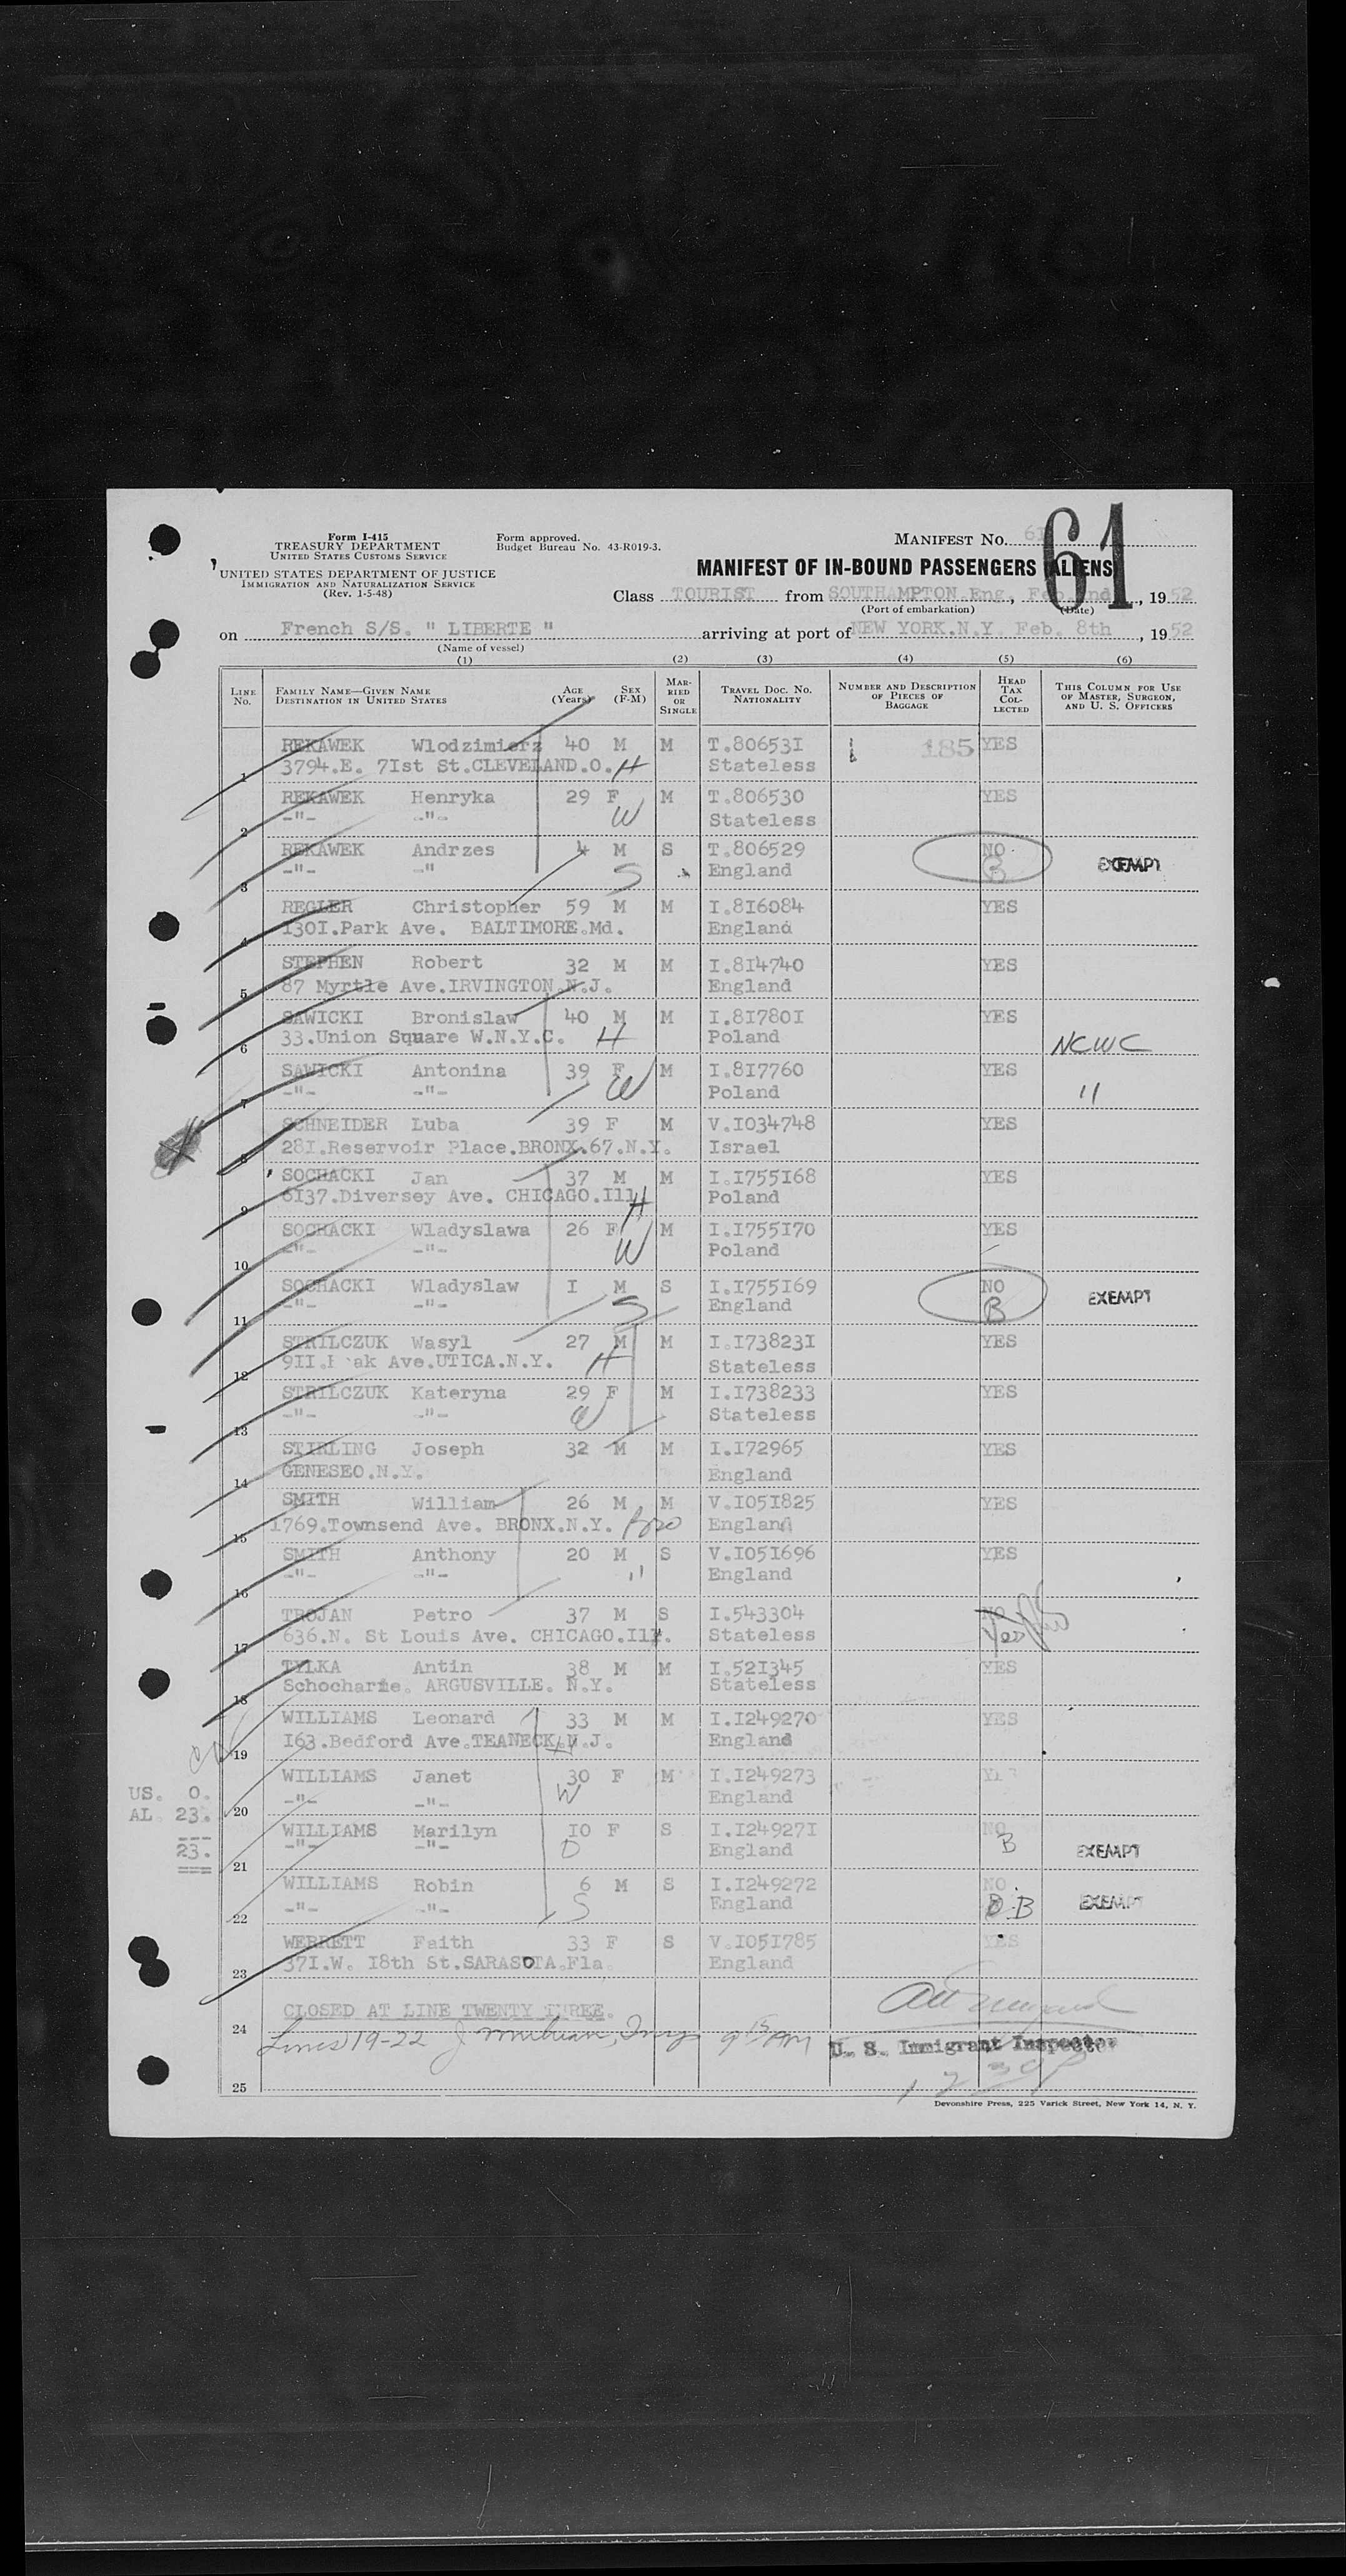 Form I-415
TREASURY DEPARTMENT
UNITED STATES CUSTOMS SERVICE
UNITED STATES DEPARTMENT OF JUSTICE
IMMIGRATION AND NATURALIZATION SERVICE
(Rev. 1-5-48)
Form approved.
Budget Bureau No. 43-R019-3.
MANIFEST NO. 61
61
MANIFEST OF IN-BOUND PASSENGERS (ALIENS)
Class TOURIST from SOUTHAMPTON.Eng., Feb. 2nd, 1952
(Port of embarkation) (Date)
on French S/S. " LIBERTE " arriving at port of NEW YORK.N.Y. Feb. 8th, 1952
(Name of vessel)
(1) (2) (3) (4) (5) (6)
LINE NO. FAMILY NAME—GIVEN NAME DESTINATION IN UNITED STATES AGE (Years) SEX (F-M) MARRIED OR SINGLE TRAVEL DOC. NO. NATIONALITY NUMBER AND DESCRIPTION OF PIECES OF BAGGAGE HEAD TAX COLLECTED THIS COLUMN FOR USE OF MASTER, SURGEON, AND U. S. OFFICERS
REKAWEK Wlodzimierz 40 M M T.80653I 185 YES
1 3794.E. 7Ist St.CLEVELAND.O. H Stateless
REKAWEK Henryka 29 F M T.806530 YES
2 -"- -"- W Stateless
REKAWEK Andrzes 4 M S T.806529 NO
3 -"- -" S England B EXEMPT
REGLER Christopher 59 M M I.8I6084 YES
4 I30I.Park Ave. BALTIMORE.Md. England
STEPHEN Robert 32 M M I.8I4740 YES
5 87 Myrtle Ave.IRVINGTON.N.J. England
SAWICKI Bronislaw 40 M M I.8I780I YES
6 33.Union Square W.N.Y.C. H Poland NCWC
SAWICKI Antonina 39 F M I.8I7760 YES
7 -"- -"- W Poland "
SCHNEIDER Luba 39 F M V.I034748 YES
8 28I.Reservoir Place.BRONX.67.N.Y. Israel
SOCHACKI Jan 37 M M I.I755I68 YES
9 6I37.Diversey Ave. CHICAGO.Ill H Poland
SOCHACKI Wladyslawa 26 F M I.I755I70 YES
10 -"- -"- W Poland
SOCHACKI Wladyslaw I M S I.I755I69 NO
11 -"- -"- S England B EXEMPT
STRILCZUK Wasyl 27 M M I.I73823I YES
12 9II. ak Ave.UTICA.N.Y. H Stateless
STRILCZUK Kateryna 29 F M I.I738233 YES
13 -"- -"- W Stateless
STIRLING Joseph 32 M M I.I72965 YES
14 GENESEO.N.Y. England
SMITH William 26 M M V.I05I825 YES
15 I769.Townsend Ave. BRONX.N.Y. Bro England
SMITH Anthony 20 M S V.I05I696 YES
16 -"- -"- " England
TROJAN Petro 37 M S I.543304 NO
17 636.N. St Louis Ave. CHICAGO.Ill. Stateless Yes
TYLKA Antin 38 M M I.52I345 YES
18 Schocharie. ARGUSVILLE. N.Y. Stateless
WILLIAMS Leonard 33 M M I.I249270 YES
19 I63.Bedford Ave.TEANECK.N.J. H England
WILLIAMS Janet 30 F M I.I249273 YES
20 -"- -"- W England
US. 0.
AL. 23.
23.
WILLIAMS Marilyn I0 F S I.I24927I NO
21 -"- -"- D England B EXEMPT
WILLIAMS Robin 6 M S I.I249272 NO
22 -"- -"- S England B EXEMPT
WERRETT Faith 33 F S V.I05I785 YES
23 37I.W. I8th St.SARASOTA.Fla. England
24 CLOSED AT LINE TWENTY THREE.
Lines 19-22 9 15 AM U. S. Immigrant Inspector
25 12 30 P
Devonshire Press, 225 Varick Street, New York 14, N. Y.